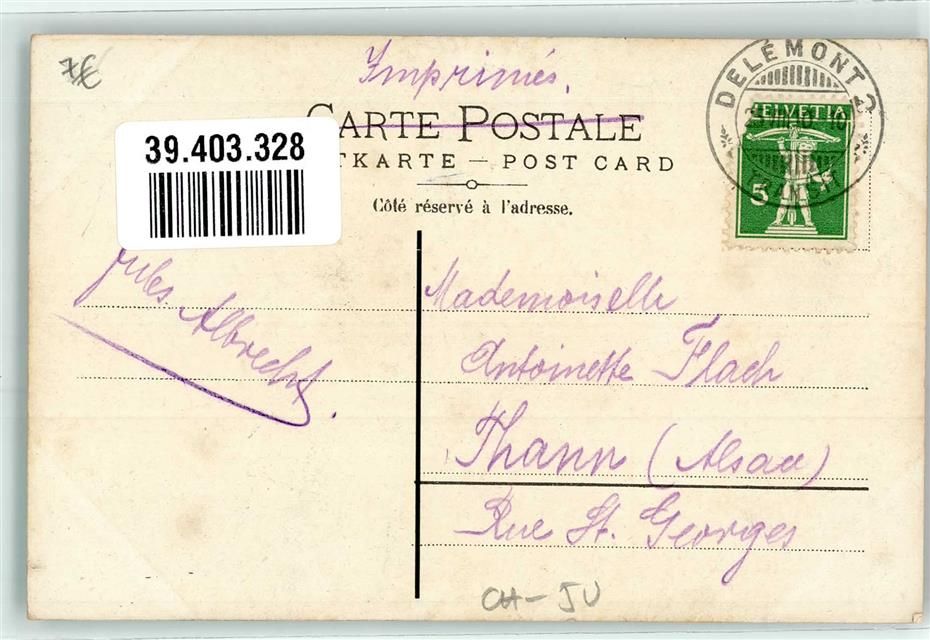 7€
Imprimés.
CARTE POSTALE
TKARTE — POST CARD
Côté réservé à l'adresse.
39.403.328
DELÉMONT 2
HELVETIA
5
Jules Albrecht.
Mademoiselle
Antoinette Flach
Thann (Alsace)
Rue St. Georges
CH-JU